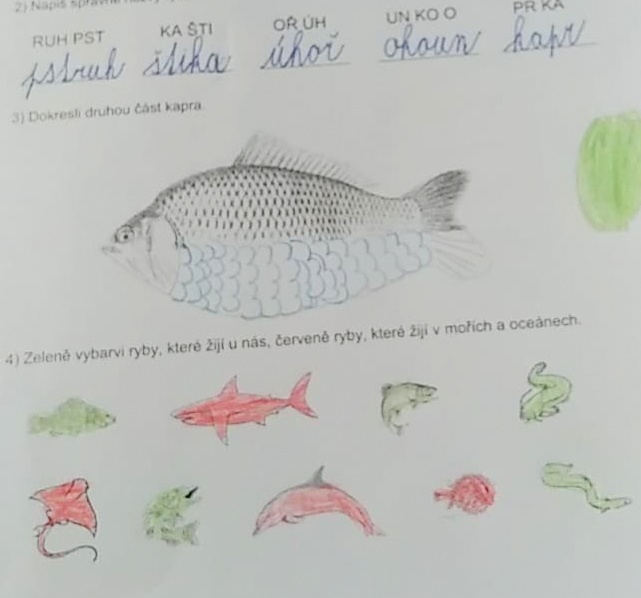 2) Napiš správně
RUH PST KA ŠTI OŘ ÚH UN KO O PR KA
pstruh štika úhoř okoun kapr
3) Dokresli druhou část kapra.
4) Zeleně vybarvi ryby, které žijí u nás, červeně ryby, které žijí v mořích a oceánech.